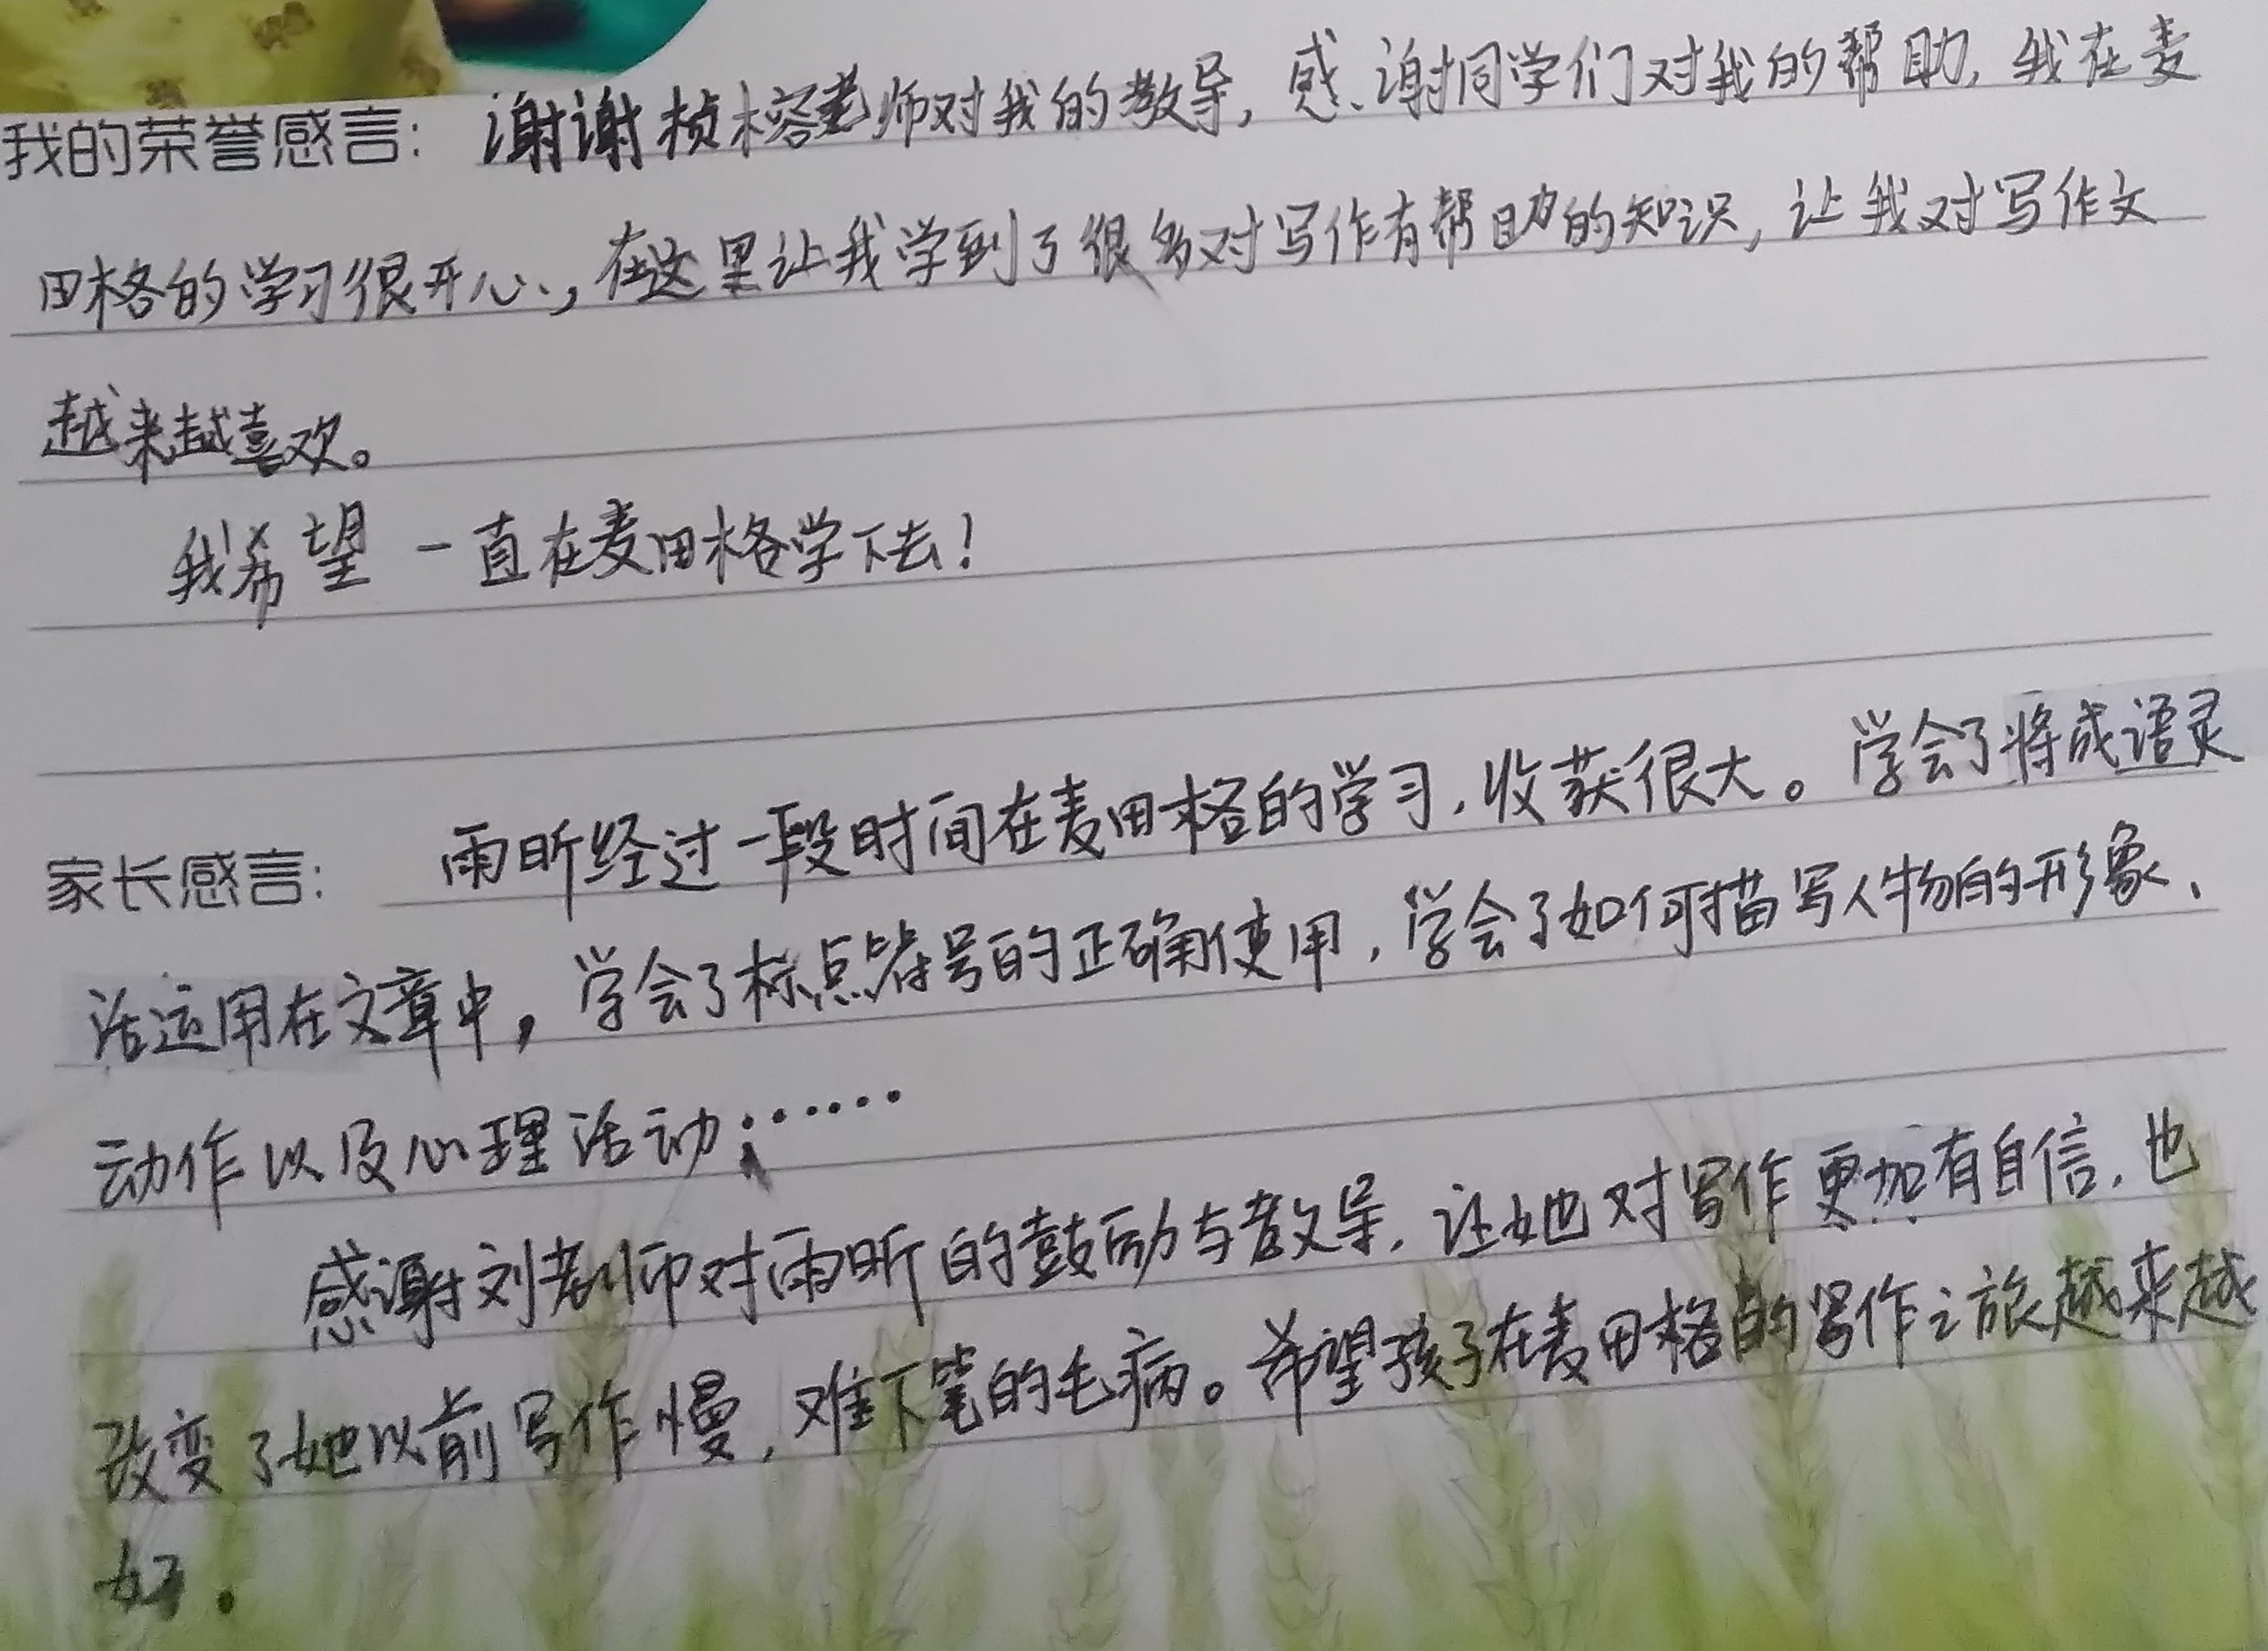 我的荣誉感言：谢谢桢榕老师对我的教导，感谢同学们对我的帮助，我在麦
田格的学习很开心，在这里让我学到了很多对写作有帮助的知识，让我对写作文
越来越喜欢。
我希望一直在麦田格学下去！
家长感言：雨昕经过一段时间在麦田格的学习，收获很大。学会了将成语灵
活运用在文章中，学会了标点符号的正确使用，学会了如何描写人物的形象、
动作以及心理活动；……
感谢刘老师对雨昕的鼓励与教导，让她对写作更加有自信，也
改变了她以前写作慢，难下笔的毛病。希望孩子在麦田格的写作之旅越来越
好.